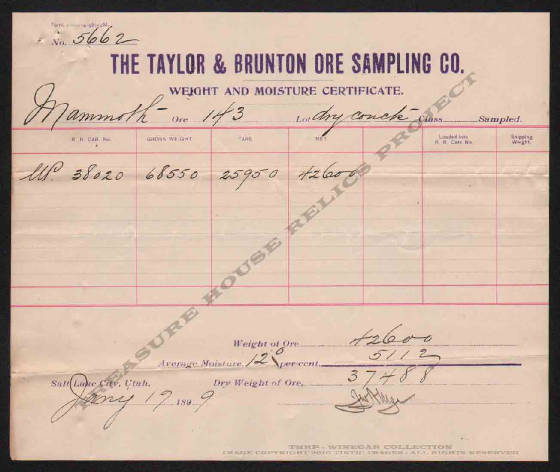 No. 5662
THE TAYLOR & BRUNTON ORE SAMPLING CO.
WEIGHT AND MOISTURE CERTIFICATE.
Mammoth Ore 143 Lot dry Class Sampled.
R. R. CAR. No. GROSS WEIGHT TARE NET Loaded into R. R. Cars No. Shipping Weight.
U.P. 38020 68550 25950 42600
TREASURE HOUSE RELICS PROJECT
Weight of Ore 42600
Average Moisture 12% per cent. 5112
Salt Lake City, Utah. Dry Weight of Ore, 37488
Jany 17 1899
THRP - WINEGAR COLLECTION
IMAGE COPYRIGHT 2010 TINTIC IMAGES - ALL RIGHTS RESERVED